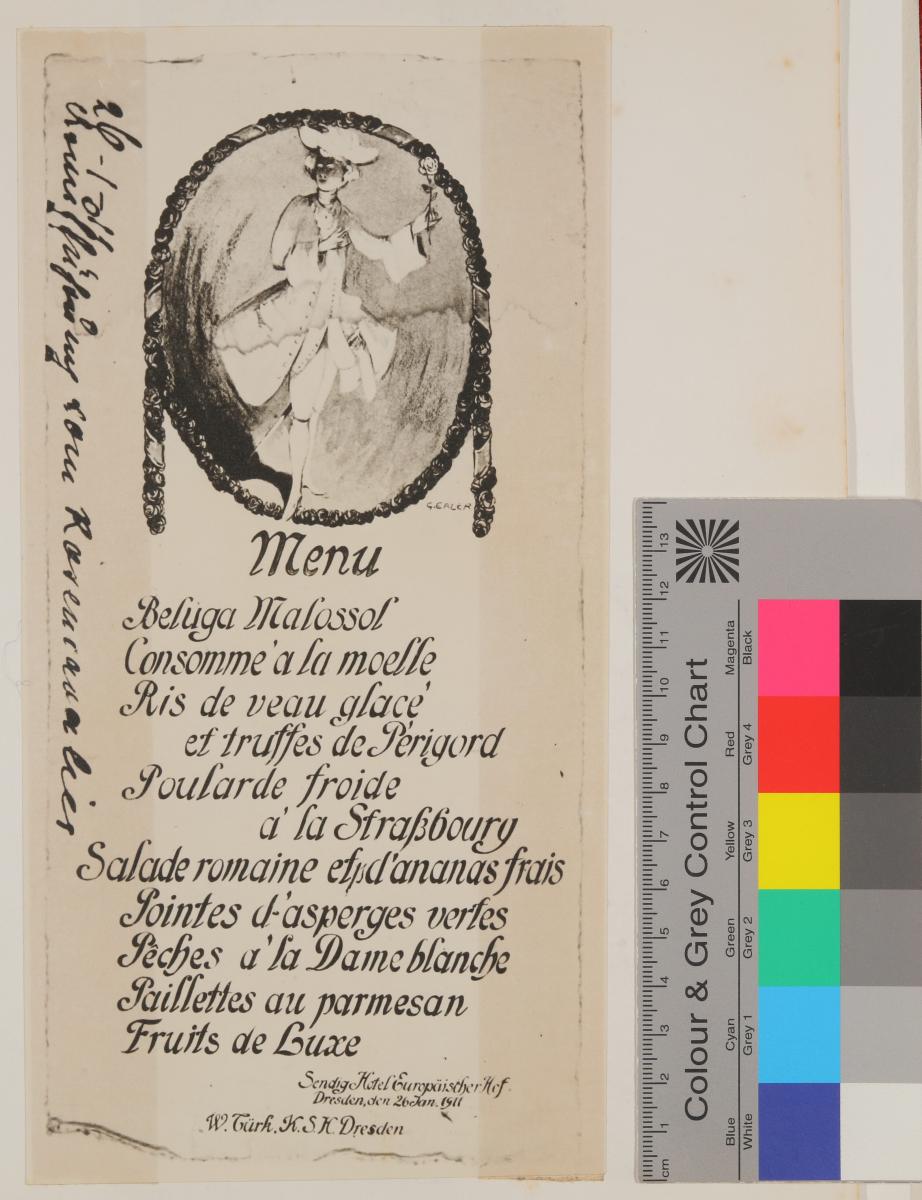 26-1-011
Erinnerung vom Rosencavalier
G. ERLER
Menu
Belüga Malossol
Consommé à la moelle
Ris de veau glacé
et truffes de Périgord
Poularde froide
à la Straßbourg
Salade romaine et d'ananas frais
Pointes d'asperges vertes
Pêches à la Dame blanche
Paillettes au parmesan
Fruits de Luxe
Sendig Hotel Europäischer Hof.
Dresden, den 26 Jan. 1911
W. Türk. K. S. H. Dresden
Colour & Grey Control Chart
Blue Cyan Green Yellow Red Magenta
White Grey 1 Grey 2 Grey 3 Grey 4 Black
cm 1 2 3 4 5 6 7 8 9 10 11 12 13